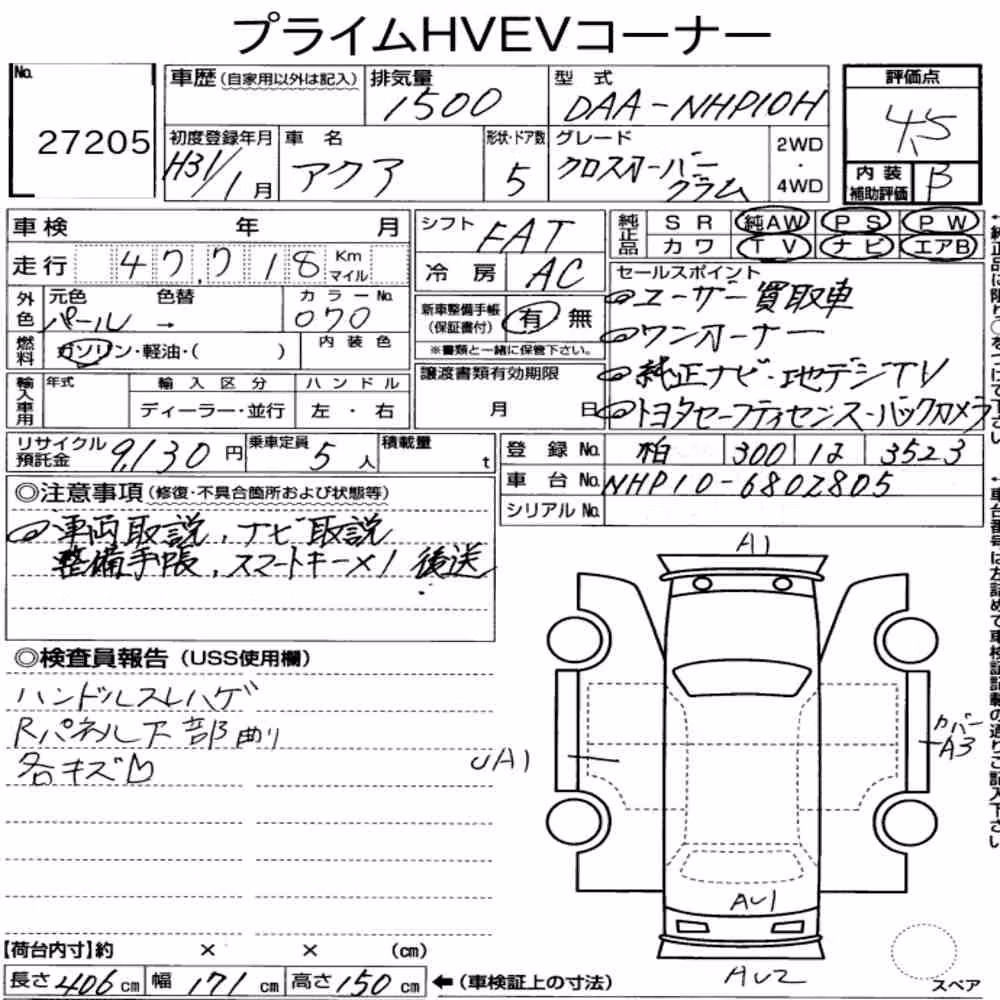 プライムHVEVコーナー
No. 27205
車歴(自家用以外は記入)
排気量 1500
型式 DAA-NHP10H
評価点
初度登録年月 H31/1月
車名 アクア
形状・ドア数 5
グレード クロスオーバー
グラム
2WD・4WD
内装補助評価 B
車検 年 月
走行 47,718 Km マイル
外色 元色 パール → 色替
カラーNo. 070
燃料 ガソリン・軽油・( )
内装色
輸入車用 年式 輸入区分 ハンドル
ディーラー・並行 左・右
シフト FAT
冷房 AC
新車整備手帳(保証書付) 有 無
※書類と一緒に保管下さい。
譲渡書類有効期限
月 日
純正品 SR 純AW PS PW
カワ TV ナビ エアB
セールスポイント
ユーザー買取車
ワンオーナー
純正ナビ・地デジTV
トヨタセーフティセンス・バックカメラ
リサイクル預託金 9,130円
乗車定員 5人
積載量 t
登録No. 柏 300 は 3523
車台No. NHP10-6802805
シリアルNo.
◎注意事項(修復・不具合箇所および状態等)
車両取説、ナビ取説
整備手帳、スマートキー×1 後送
◎検査員報告(USS使用欄)
ハンドルスレハゲ
Rパネル下部曲り
各キズ凹
A1
UA1
カバー
A3
AU1
AU2
スペア
【荷台内寸】約 × × (cm)
長さ 406 cm 幅 171 cm 高さ 150 cm ←(車検証上の寸法)